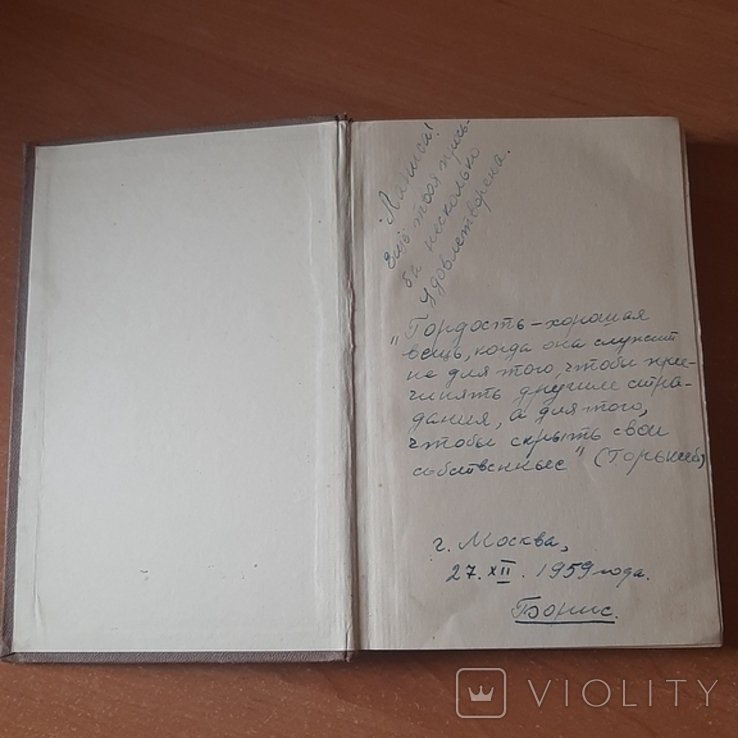 Лариса!
Ещё твоя прось-
ба несколько
удовлетворена.
"Гордость-хорошая
вещь, когда она служит
не для того, чтобы при-
чинять другим стра-
дания, а для того,
чтобы скрыть свои
собственные" (Горький)
г. Москва,
27. XII. 1959 года.
Борис.
VIOLITY